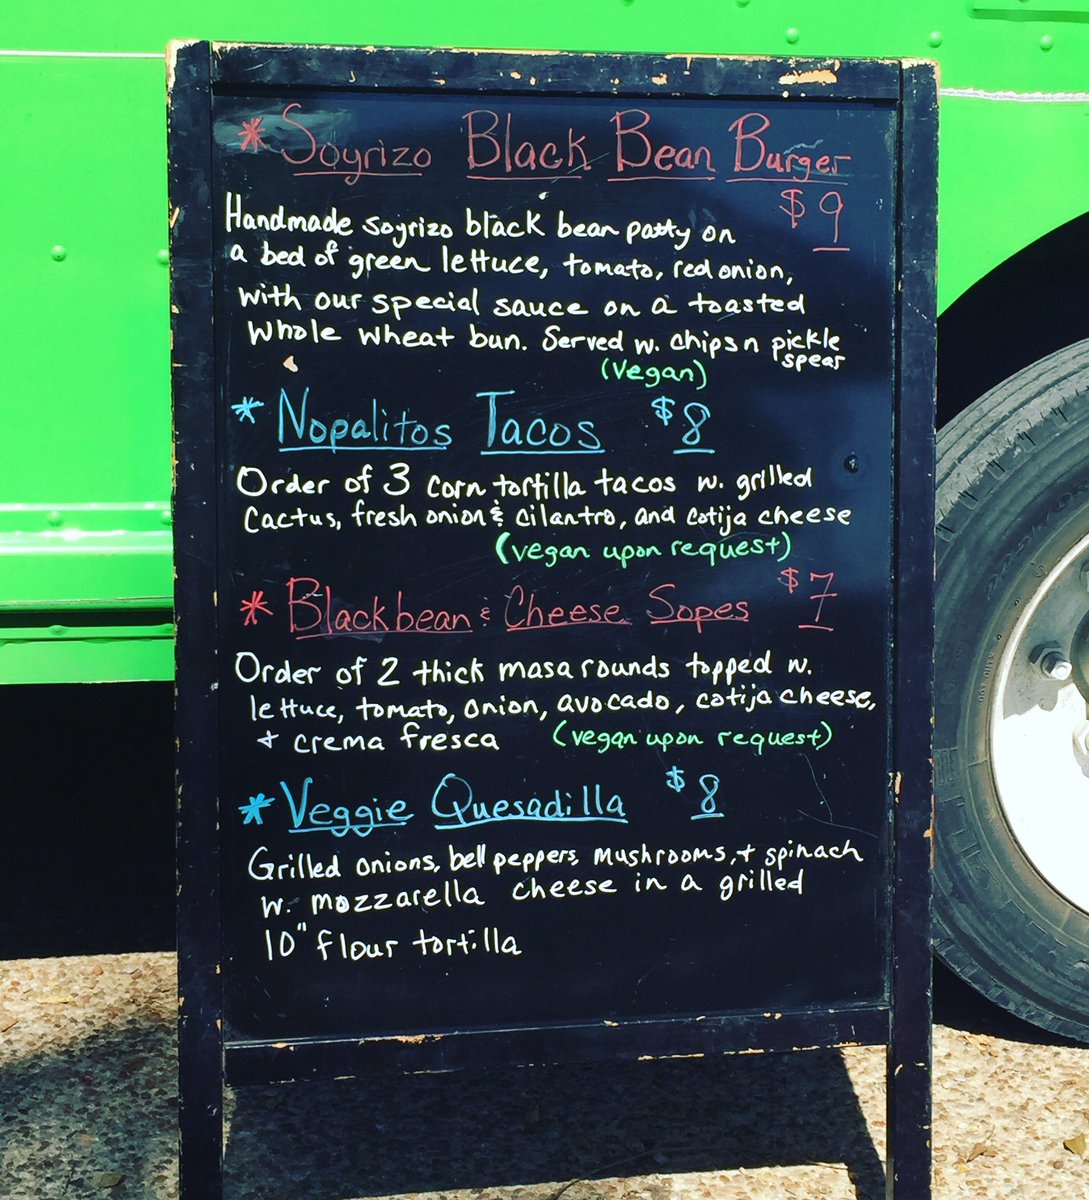 * Soyrizo Black Bean Burger
$9
Handmade soyrizo black bean patty on
a bed of green lettuce, tomato, red onion,
with our special sauce on a toasted
whole wheat bun. Served w. chips n pickle
spear
(Vegan)
* Nopalitos Tacos $8
Order of 3 corn tortilla tacos w. grilled
cactus, fresh onion & cilantro, and cotija cheese
(vegan upon request)
* Blackbean & Cheese Sopes $7
Order of 2 thick masa rounds topped w.
lettuce, tomato, onion, avocado, cotija cheese,
+ crema fresca (vegan upon request)
* Veggie Quesadilla $8
Grilled onions, bell peppers, mushrooms, + spinach
w. mozzarella cheese in a grilled
10" flour tortilla